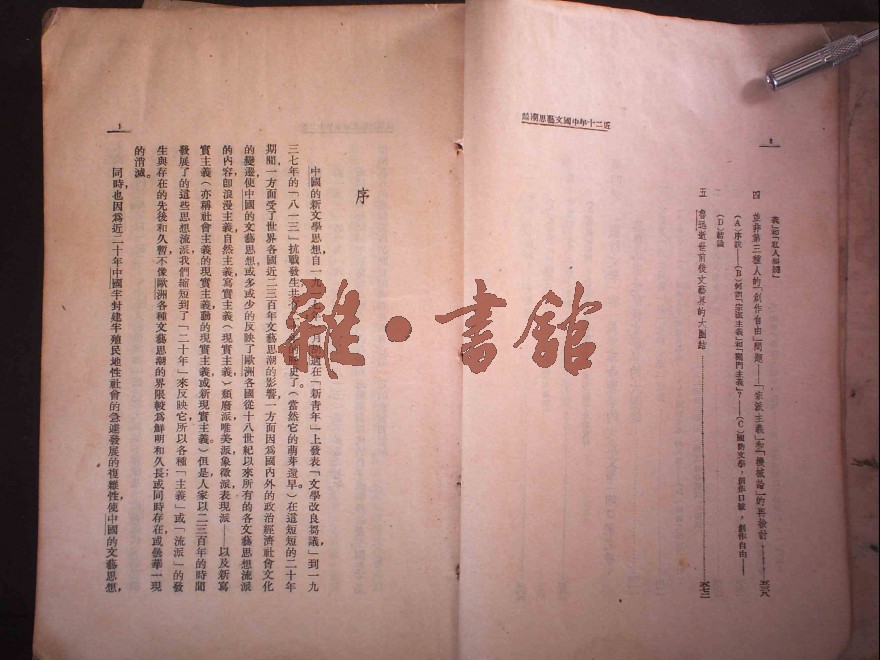 近二十年中國文藝思潮論
四 並非第三種人的「創作自由」問題——「宗派主義」和「機械論」的再檢討
(A)序說——(B)何謂「宗派主義」和「關門主義」?——(C)國防文學,創作口號,創作自由——
(D)結論
五 魯迅逝世前後文藝界的大團結
序
中國的新文學思想,自一九一七年 月胡適在「新青年」上發表「文學改良芻議」到一九
三七年的「八一三」抗戰發生共 的歷史了(當然它的萌芽還早。)在這短短的二十年
期間一方面受了世界各國近二三百年文藝思潮的影響,一方面因為國內外的政治經濟社會文化
的變遷,使中國的文藝思想,或多或少的反映了歐洲各國從十八世紀以來所有的各文藝思想流派
的內容,即浪漫主義,自然主義,寫實主義(現實主義,)頹廢派,唯美派,象徵派,表現派——以及新寫
實主義(亦稱社會主義的現實主義,動的現實主義或新現實主義。)但是人家以二三百年的時間
發展了的這些思想流派,我們縮短到了「二十年」來反映它,所以各種「主義」或「流派」的發
生與存在的先後和久暫,不像歐洲各種文藝思潮的界限較為鮮明和久長;或同時存在,或曇華一現
的消滅。
同時,也因為近二十年中國半封建半殖民地性社會的急遽發展的複雜性,使中國的文藝思想,
1
雜·書館